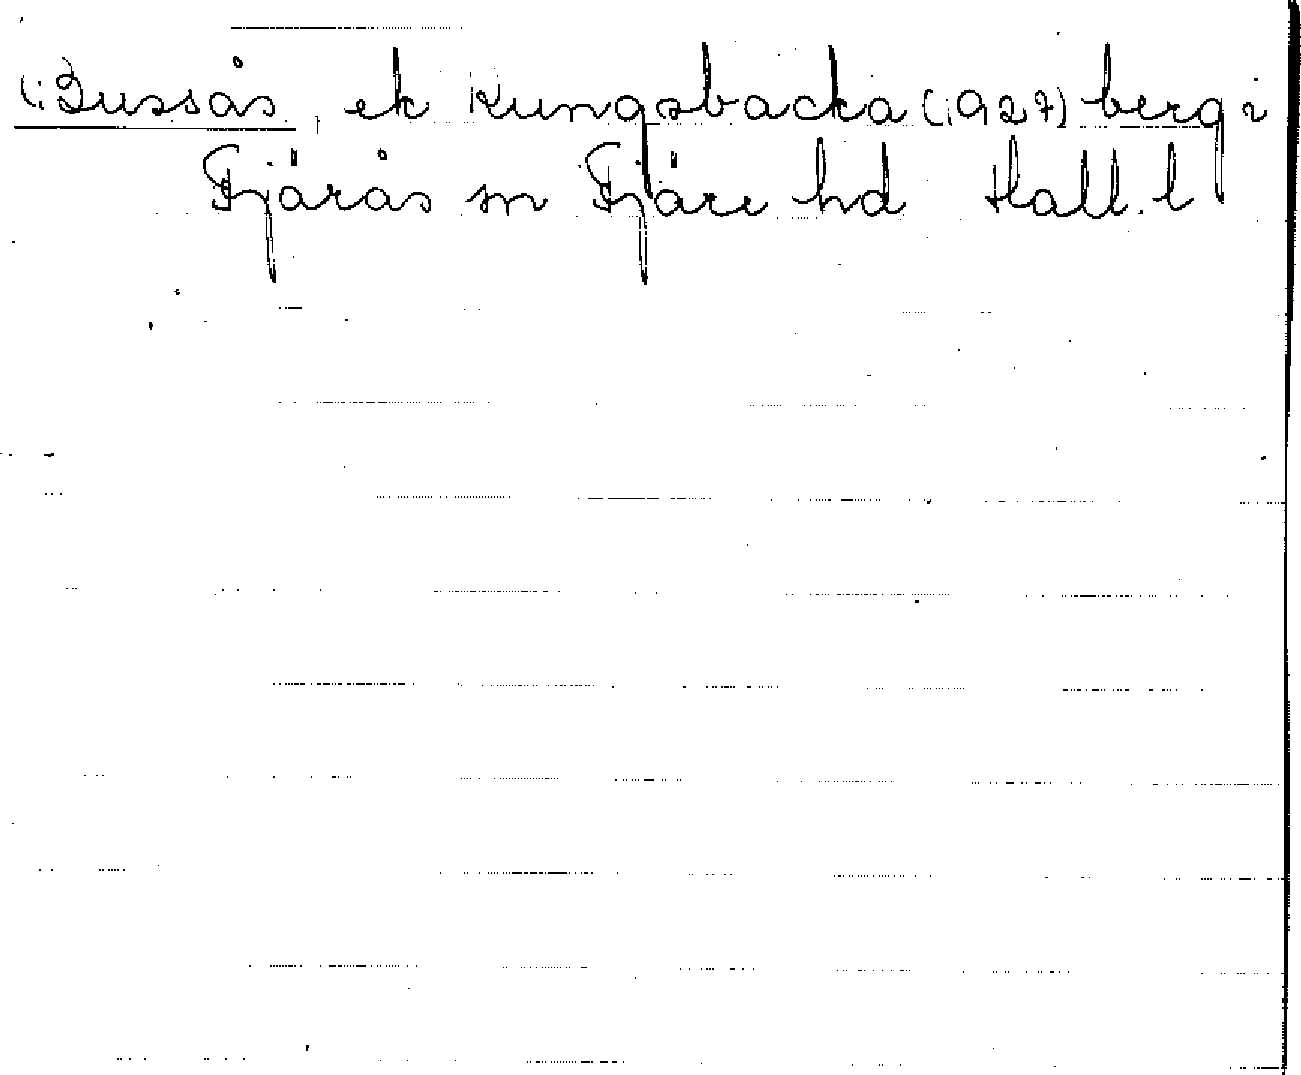 (:Bussås, ek Kungsbacka (1927) berg i
Fjärås sn Fjäre hd Hall. l